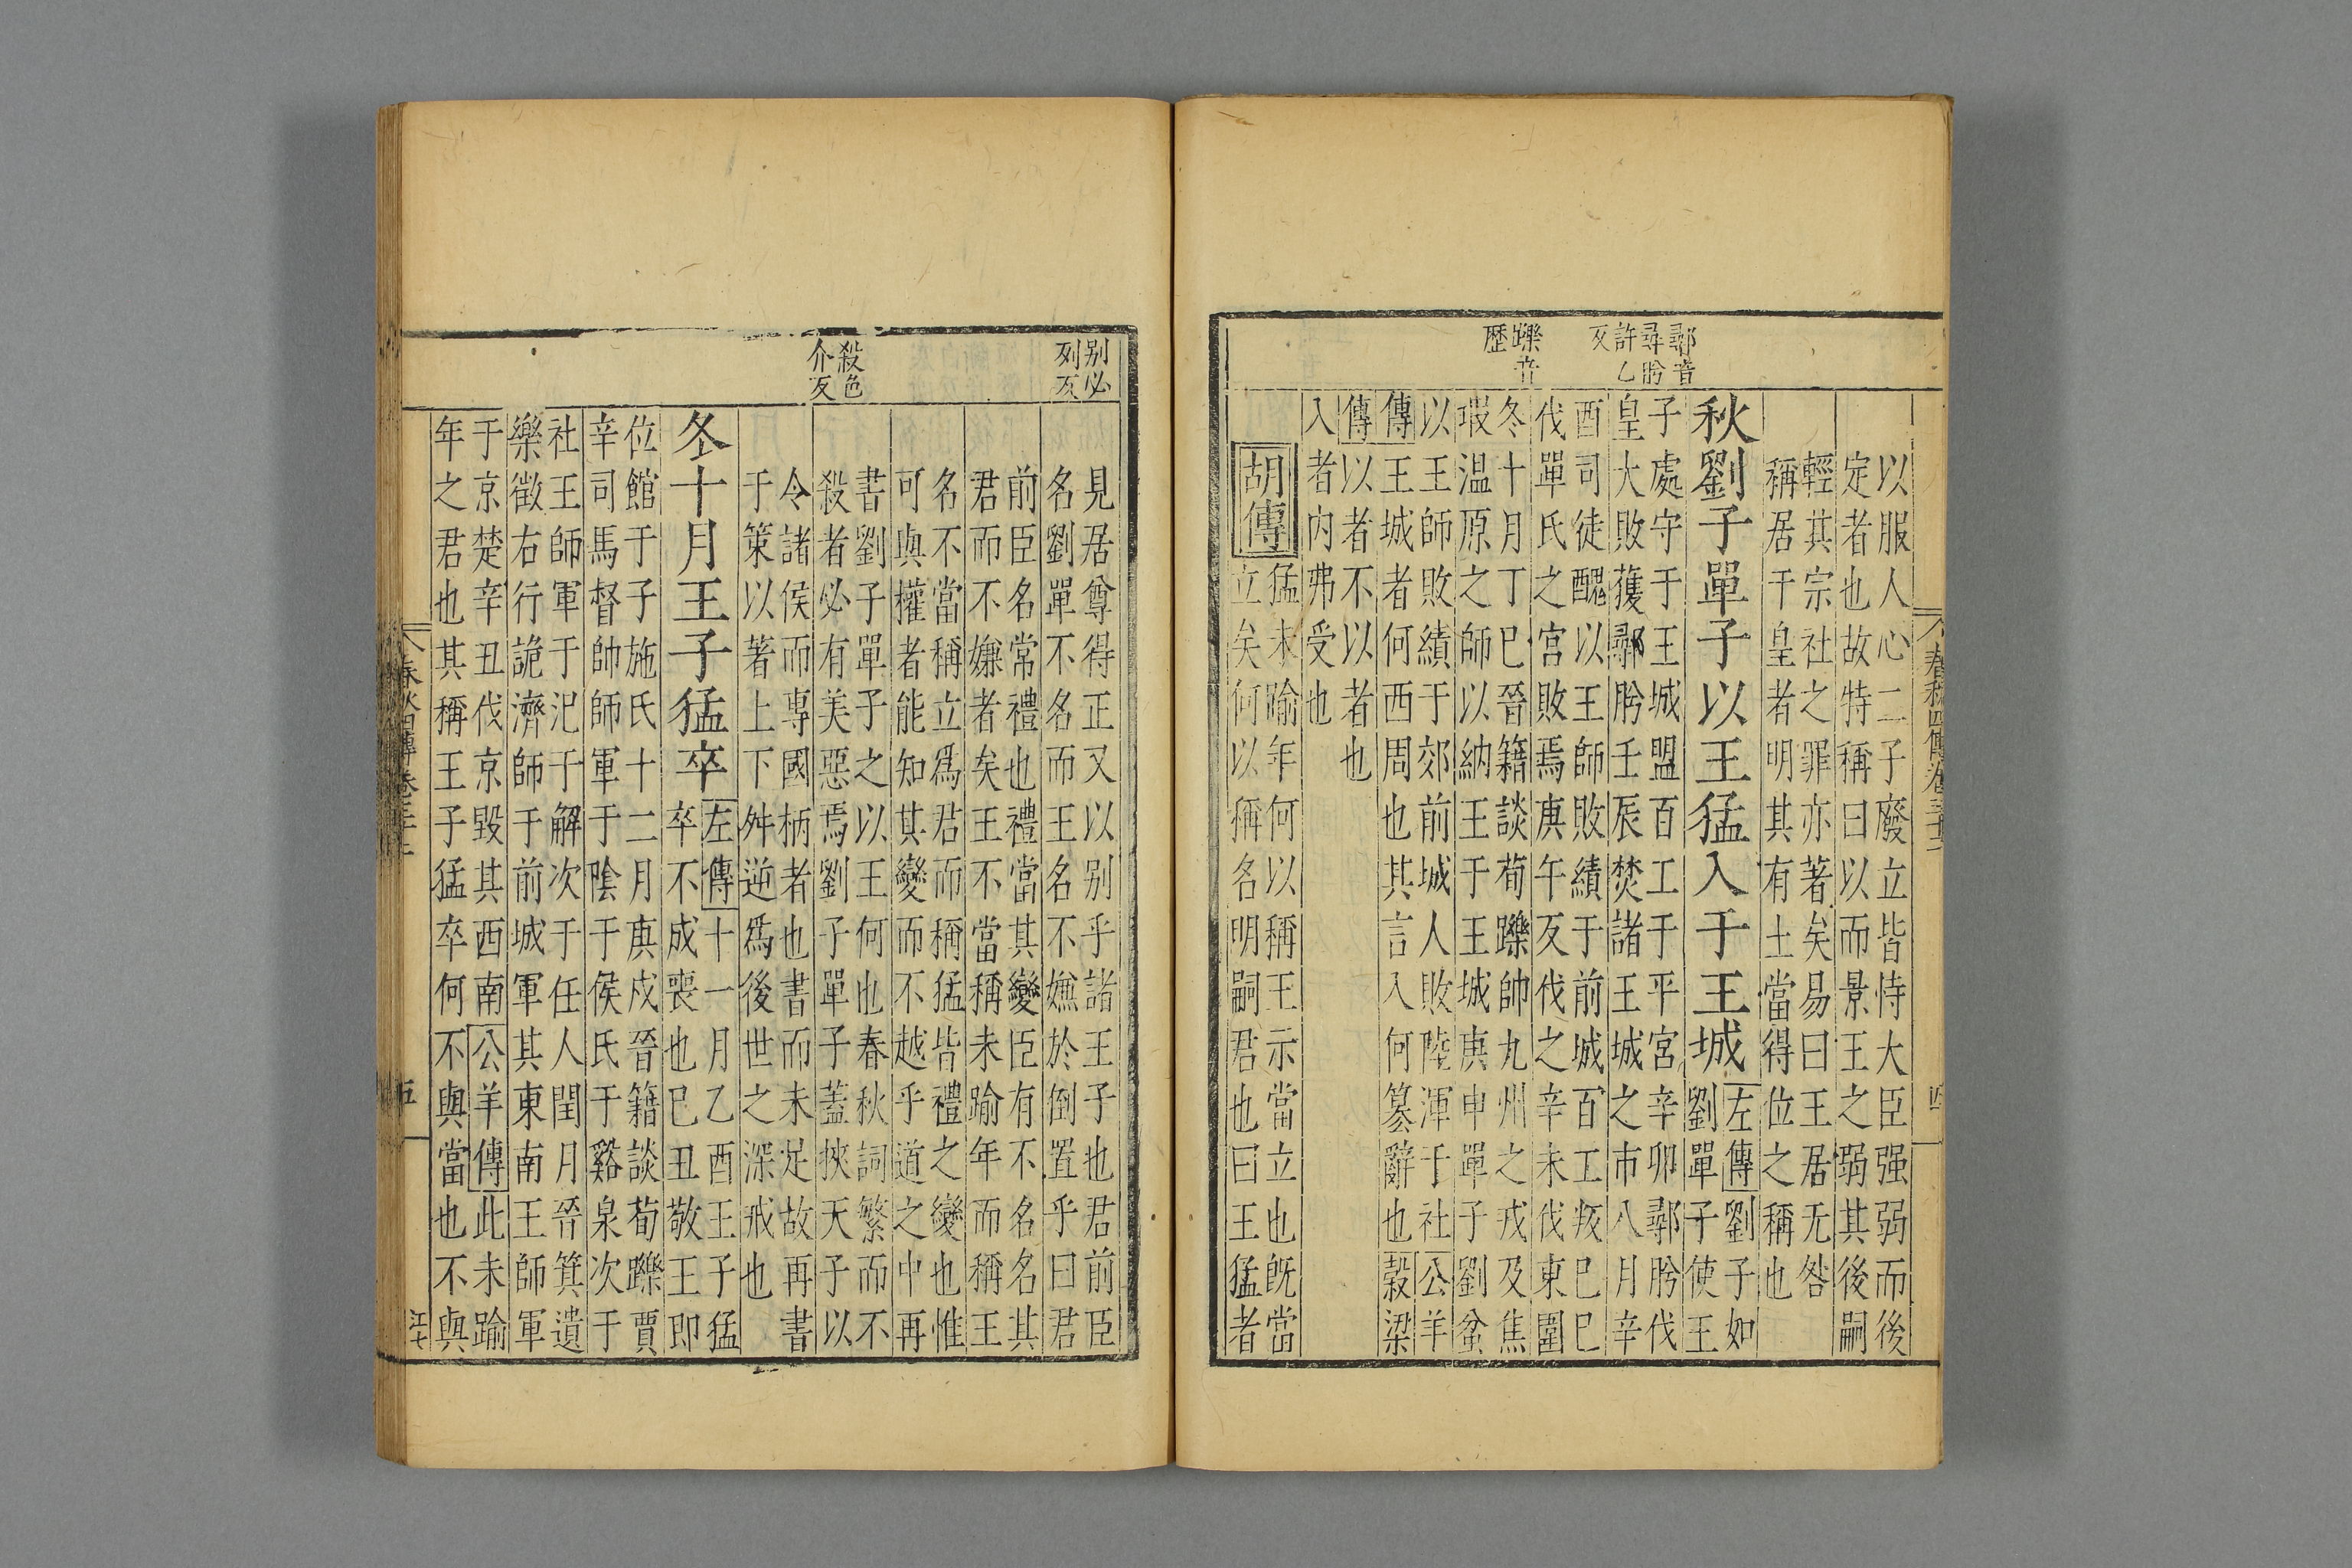 鄩音
尋肹
許乙
反
躒音
歷
以服人心二子廢立皆恃大臣强弱而後
定者也故特稱曰以而景王之弱其後嗣
輕其宗社之罪亦著矣易曰王居无咎
稱居于皇者明其有土當得位之稱也
秋劉子單子以王猛入于王城
左傳劉子如
劉單子使王
子處守于王城盟百工于平宮辛卯鄩肹伐
皇大敗獲鄩肹壬辰焚諸王城之市八月辛
酉司徒醜以王師敗績于前城百工叛己巳
伐單氏之宮敗焉庚午反伐之辛未伐東圉
冬十月丁巳晉籍談荀躒帥九州之戎及焦
瑕溫原之師以納王于王城庚申單子劉蚠
以王師敗績于郊前城人敗陸渾于社公羊
傳王城者何西周也其言入何篡辭也穀梁
傳以者不以者也
入者內弗受也
胡傳
猛未踰年何以稱王示當立也既當
立矣何以稱名明嗣君也曰王猛者
春秋四傳卷三十二
四
別必
列反
殺色
介反
見居尊得正又以别乎諸王子也君前臣
名劉單不名而王名不嫌於倒置乎曰君
前臣名常禮也禮當其變臣有不名名其
君而不嫌者矣王不當稱未踰年而稱王
名不當稱立爲君而稱猛皆禮之變也惟
可與權者能知其變而不越乎道之中再
書劉子單子之以王何也春秋詞繁而不
殺者必有美惡焉劉子單子蓋挾天子以
令諸侯而專國柄者也書而未足故再書
于策以著上下舛逆爲後世之深戒也
冬十月王子猛卒
左傳十一月乙酉王子猛
卒不成喪也已丑敬王即
位館于子施氏十二月庚戌晉籍談荀躒賈
辛司馬督帥師軍于陰于侯氏于谿泉次于
社王師軍于汜于解次于任人閏月晉箕遺
樂徵右行詭濟師于前城軍其東南王師軍
于京楚辛丑伐京毀其西南公羊傳此未踰
年之君也其稱王子猛卒何不與當也不與
春秋四傳卷三十二
五